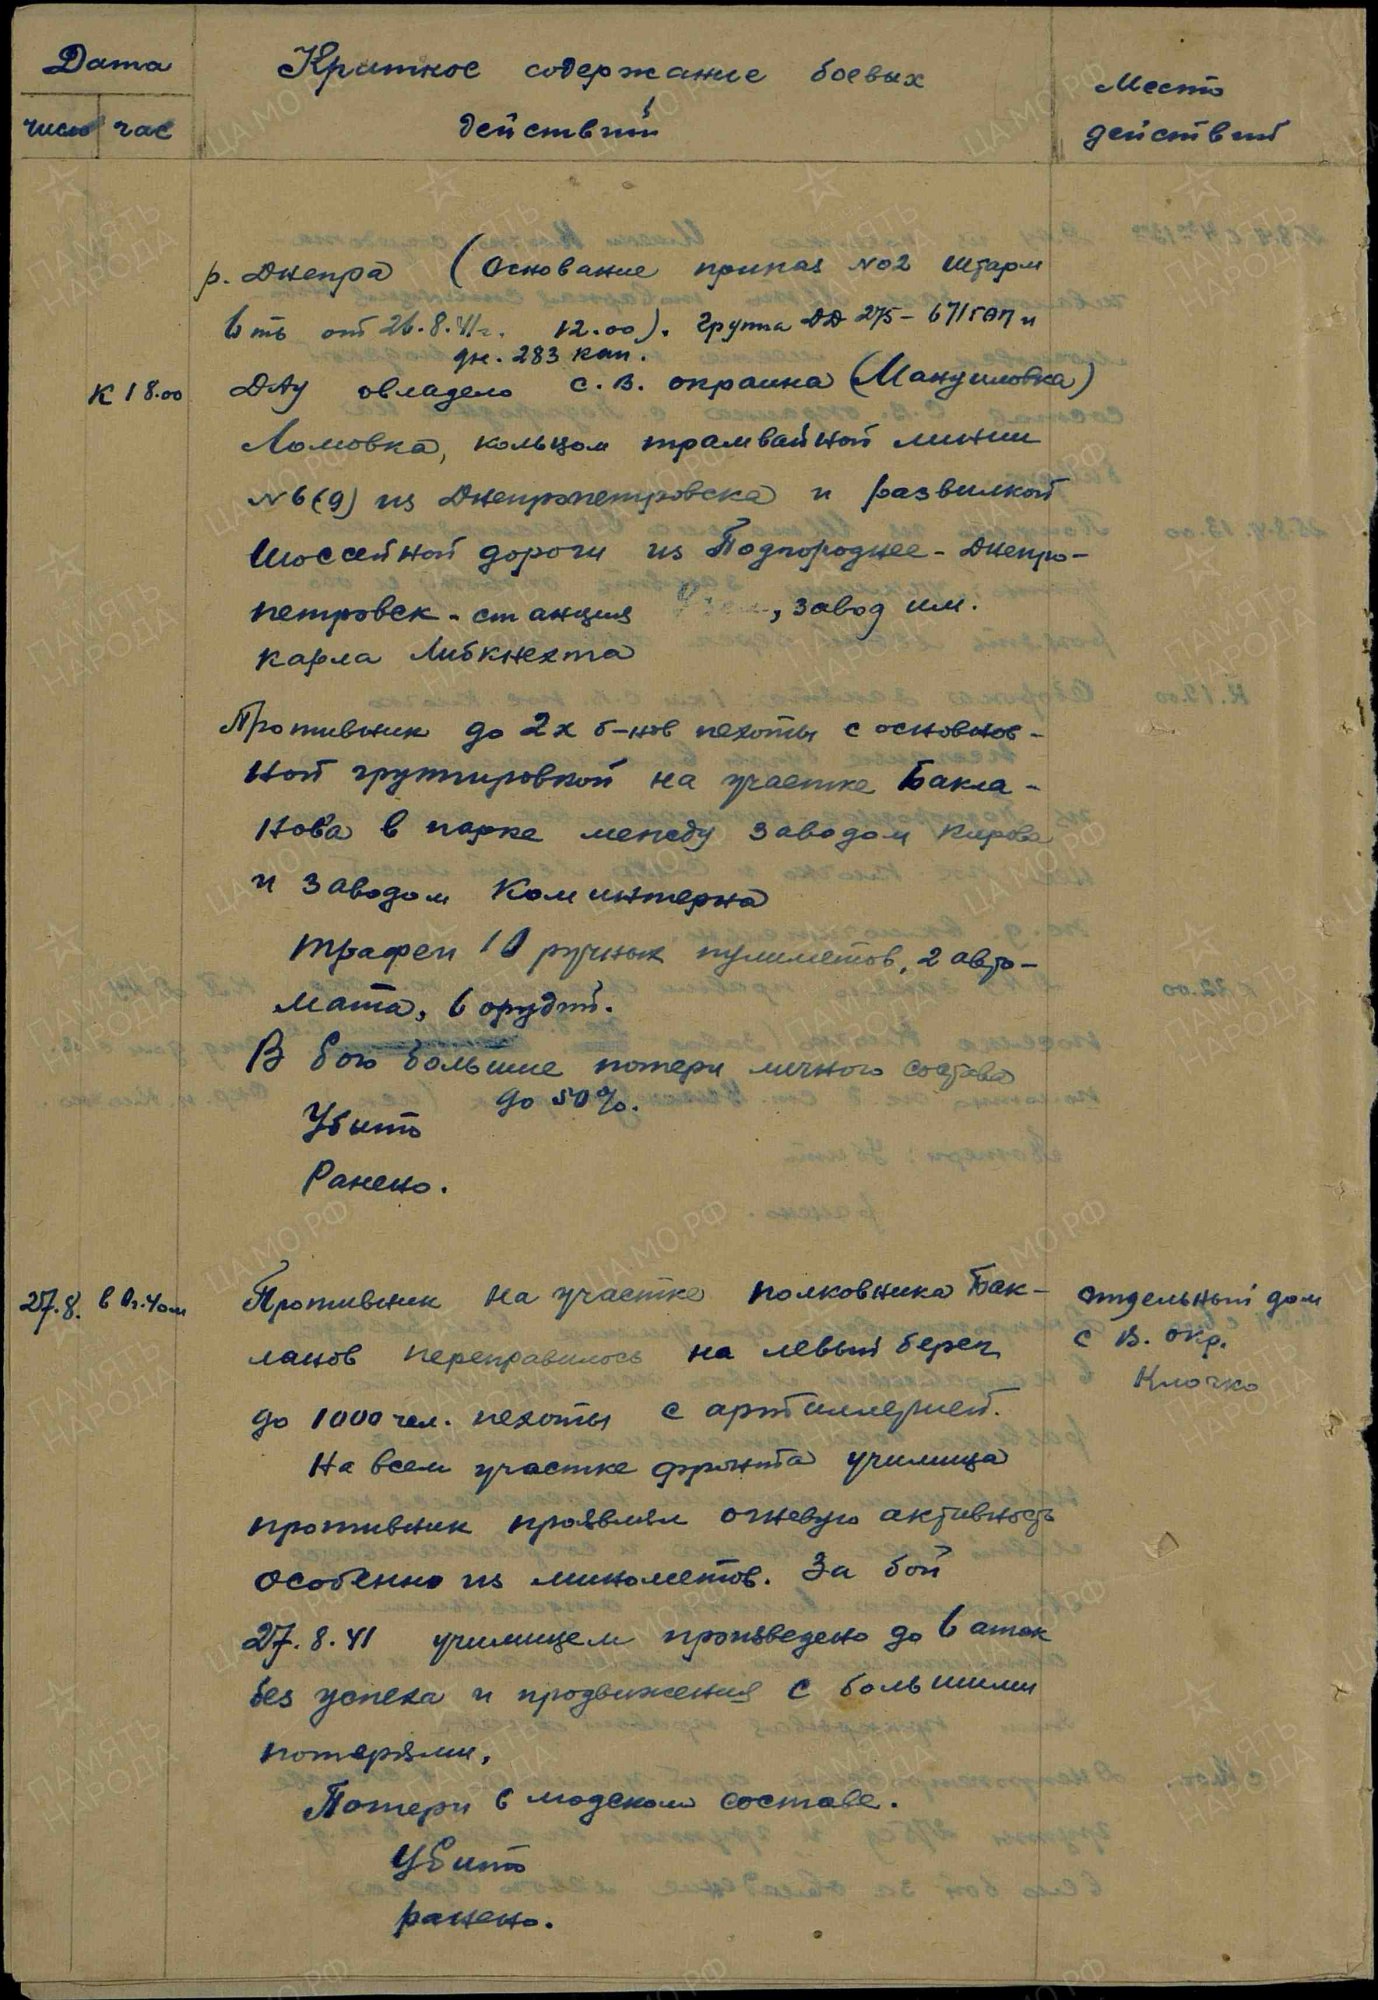 Дата
Краткое содержание боевых
действий
Место
действий
число час
р. Днепра (Основание приказ №02 Штарм
6 ть от 26.8.41г. 12.00). Группа ДД 275 - 671 ГАП и
дн. 283 кап.
К 18.00 ДАУ овладело с.в. окраина (Мануиловка)
Ломовка, кольцом трамвайной линии
№6(9) из Днепропетровска и развилкой
шоссейной дороги из Подгороднее - Днепро-
петровск - станция , завод им.
Карла Либкнехта
Противник до 2х б-нов пехоты с основнов-
ной группировкой на участке Бакла-
нова в парке между заводом Кирова
и заводом Коминтерна
трафеи 10 ручных пулиметов, 2 авто-
мата, 6 орудий.
В бою большие потери личного состава
до 50%.
Убито
Ранено.
27.8. в 0г.40м Противник на участке полковника Бак-
ланов переправилось на левый берег
до 1000 чел. пехоты с артиллерией.
отдельный дом
с В. окр.
Клочко
На всем участке фронта училища
противник проявлял огневую активность
особенно из минометов. За бой
27.8.41 училищем произведено до 6 атак
без успеха и продвижения с большими
потерями,
Потери в людском составе.
Убито
ранено.